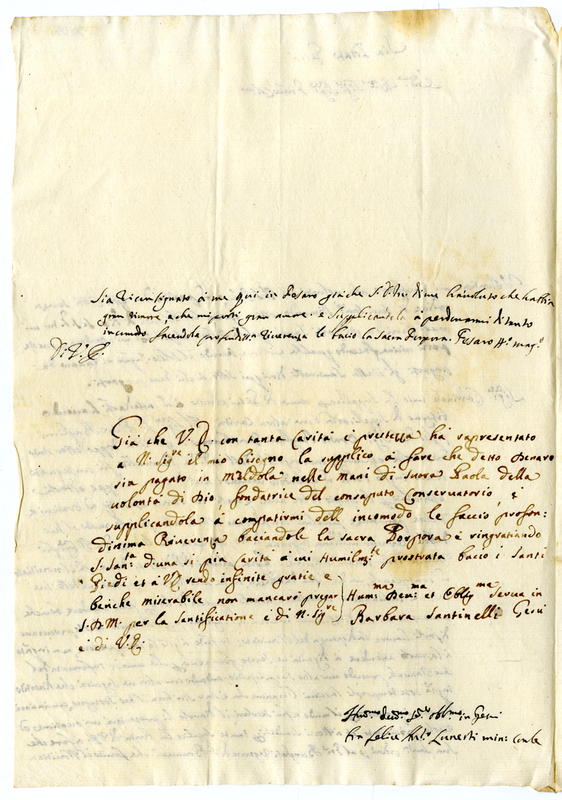 sia riconsignato à me qui in Pesaro
gran e che mi porti gran amore. e supplicandola à perdonarmi di tanto
incomodo facendole profondissima riverenza le bacio la Sacra Porpora. Pesaro
Di V. E.
Già che V. E. con tanta carità e prestezza ha rapresentato
a N. Sigre il mio bisogno la supplico à fare che detto Denaro
sia pagato in Meldola nelle mani di Suora Paola della
volontà di Dio, fondatrice del consaputo Conservatorio, e
supplicandola à compatirmi dell incomodo le faccio profon:
dissima Riverenza baciandole la sacra Porpora e ringratiando
S. Santa d'una si pia Carità à cui Humilmte prostrata bacio i Santi
Piedi et à V. E. rendo infinite gratie, e
benche miserabile non mancarò pregar
S. D. M. per la Santificatione e di N. Sigre
e di V. E.
Humma Devma et Obblma Serva in
Barbara Santinelli Gesù
Hummo devmo obbmo in Gesù
fra Felice min: Conle